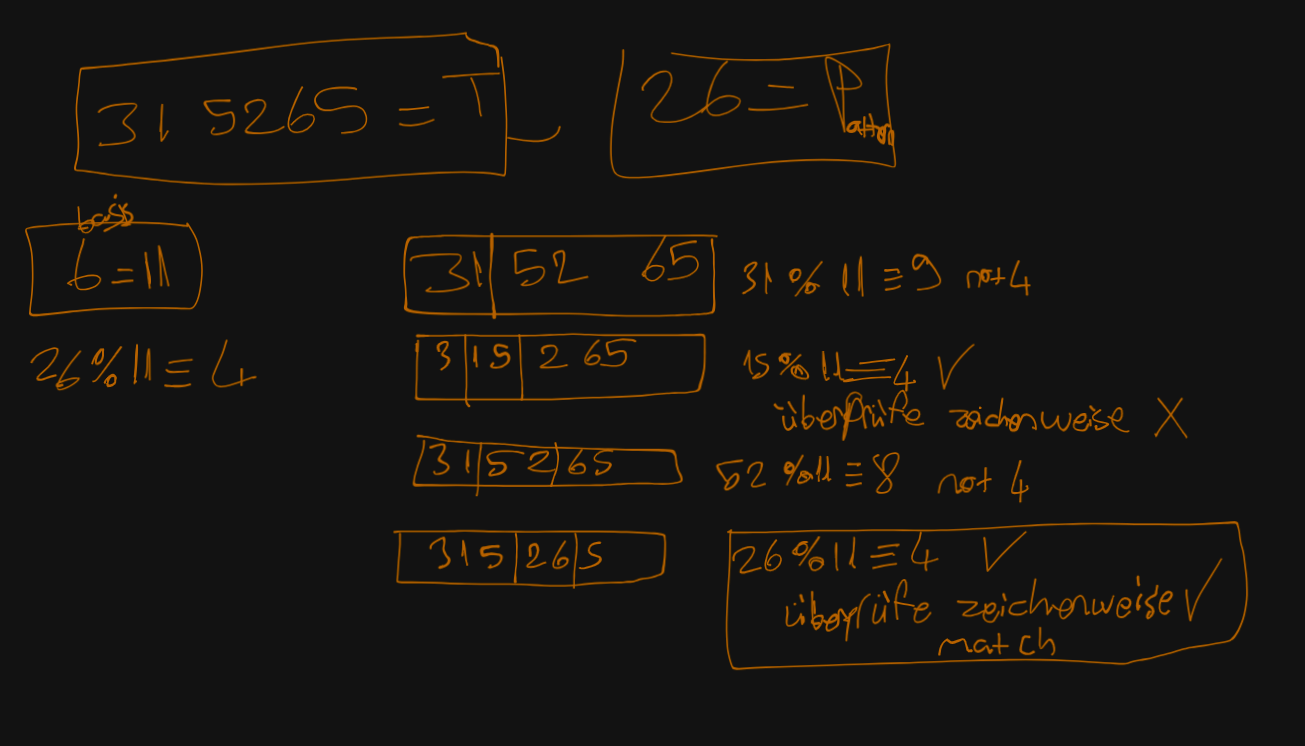 315265 = T
26 = Pattern
basis
b = 11
31 | 52 65
31 % 11 ≡ 9 not 4
26 % 11 ≡ 4
3 | 15 | 2 65
15 % 11 ≡ 4 ✓
überprüfe zeichenweise X
31 | 52 | 65
52 % 11 ≡ 8 not 4
315 | 26 | 5
26 % 11 ≡ 4 ✓
überprüfe zeichenweise ✓
match